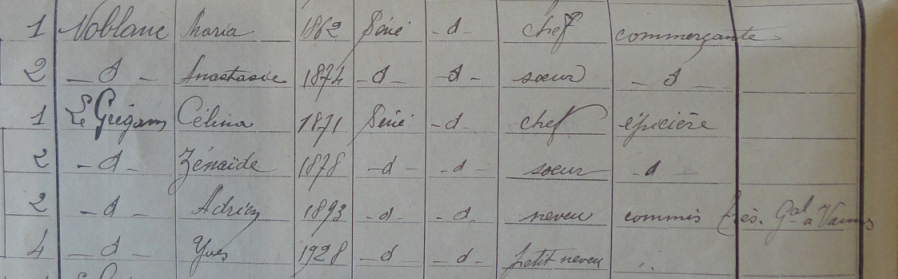 1 Noblanc Maria 1862 Séné -d- chef commerçante
2 -d- Anastasie 1874 -d- -d- soeur -d-
1 Le Grégam Célina 1871 Séné -d- chef épicière
2 -d- Zénaïde 1878 -d- -d- soeur -d-
2 -d- Adrien 1893 -d- -d- neveu commis Trés. Gal à Vannes
4 -d- Yves 1928 -d- -d- petit neveu